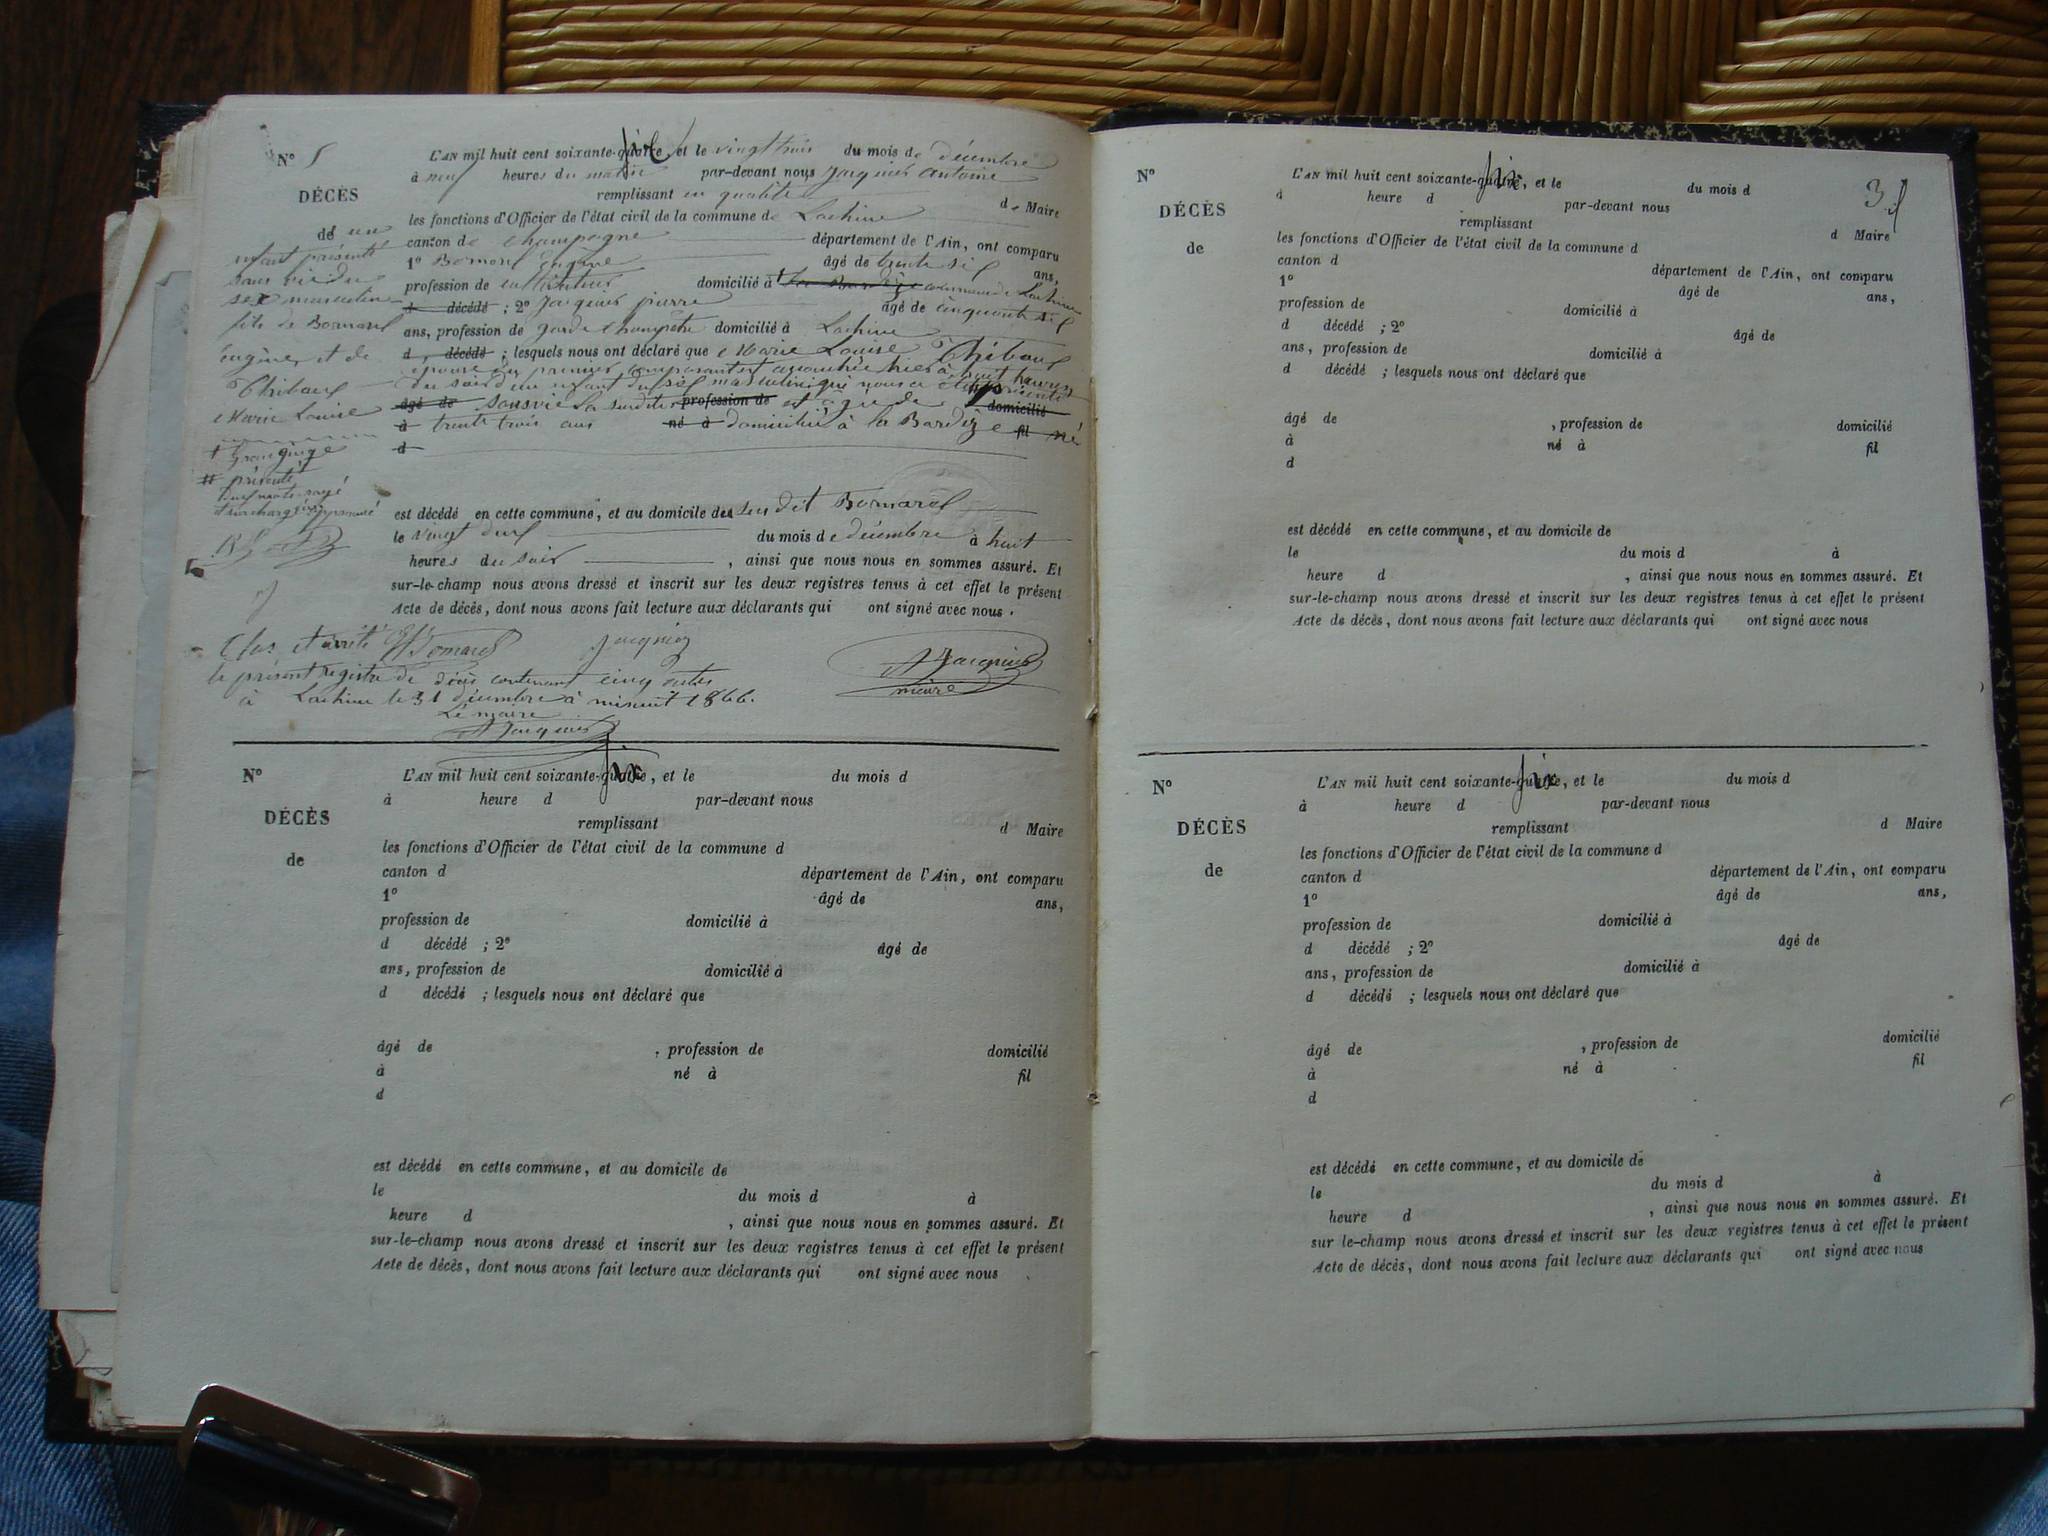 N° 5
DÉCÈS
de un
enfant présenté
sans vie du
sexe masculine
fils de Bornarel
Eugène et de
Thibaud
Marie Louise
présenté
L'AN mil huit cent soixante-six, et le vingt trois du mois de décembre
à neuf heures du matin par-devant nous Jacquier Antoine
remplissant en qualité de Maire
les fonctions d'Officier de l'état civil de la commune de
canton de Champagne département de l'Ain, ont comparu
1° Bornarel Eugène âgé de trente six ans,
profession de cultivateur domicilié à commune de
d décédé ; 2° Jacquier pierre âgé de cinquante six
ans, profession de garde champêtre domicilié à
d décédé ; lesquels nous ont déclaré que Marie Louise Thibaud
épouse du premier comparant est accouchée hier à huit heures
du soir d'un enfant du sexe masculin qui nous a été présenté
âgé de sans vie la susdite profession de et agée de domicilié
à trente trois ans né à domiciliée à la fil né
d
est décédé en cette commune, et au domicile du susdit Bornarel
le vingt deux du mois de décembre à huit
heures du soir , ainsi que nous nous en sommes assuré. Et
sur-le-champ nous avons dressé et inscrit sur les deux registres tenus à cet effet le présent
Acte de décès, dont nous avons fait lecture aux déclarants qui ont signé avec nous.
Clos et arrêté Bornarel Jacquier A Jacquier
le présent registre de décès contenant cinq actes maire
à le 31 décembre à minuit 1866.
Le maire
A Jacquier
N° L'AN mil huit cent soixante-six, et le du mois d
DÉCÈS
de
à heure d par-devant nous
remplissant d Maire
les fonctions d'Officier de l'état civil de la commune d
canton d département de l'Ain, ont comparu
1° âgé de ans,
profession de domicilié à
d décédé ; 2° âgé de
ans, profession de domicilié à
d décédé ; lesquels nous ont déclaré que
âgé de , profession de domicilié
à né à fil
d
est décédé en cette commune, et au domicile de
le du mois d à
heure d , ainsi que nous nous en sommes assuré. Et
sur-le-champ nous avons dressé et inscrit sur les deux registres tenus à cet effet le présent
Acte de décès, dont nous avons fait lecture aux déclarants qui ont signé avec nous
3
N° L'AN mil huit cent soixante-six, et le du mois d
DÉCÈS
de
à heure d par-devant nous
remplissant d Maire
les fonctions d'Officier de l'état civil de la commune d
canton d département de l'Ain, ont comparu
1° âgé de ans,
profession de domicilié à
d décédé ; 2° âgé de
ans, profession de domicilié à
d décédé ; lesquels nous ont déclaré que
âgé de , profession de domicilié
à né à fil
d
est décédé en cette commune, et au domicile de
le du mois d à
heure d , ainsi que nous nous en sommes assuré. Et
sur-le-champ nous avons dressé et inscrit sur les deux registres tenus à cet effet le présent
Acte de décès, dont nous avons fait lecture aux déclarants qui ont signé avec nous
N° L'AN mil huit cent soixante-six, et le du mois d
DÉCÈS
de
à heure d par-devant nous
remplissant d Maire
les fonctions d'Officier de l'état civil de la commune d
canton d département de l'Ain, ont comparu
1° âgé de ans,
profession de domicilié à
d décédé ; 2° âgé de
ans, profession de domicilié à
d décédé ; lesquels nous ont déclaré que
âgé de , profession de domicilié
à né à fil
d
est décédé en cette commune, et au domicile de
le du mois d à
heure d , ainsi que nous nous en sommes assuré. Et
sur le-champ nous avons dressé et inscrit sur les deux registres tenus à cet effet le présent
Acte de décès, dont nous avons fait lecture aux déclarants qui ont signé avec nous